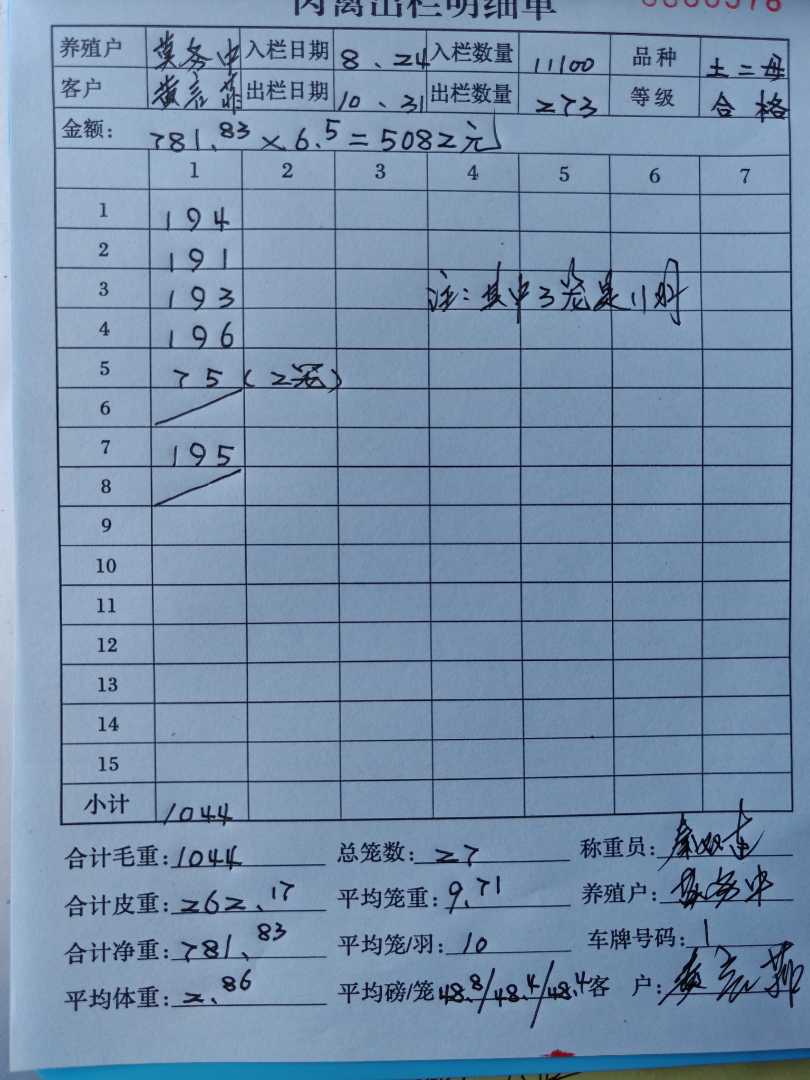 肉禽出栏明细单
养殖户 莫务中 入栏日期 8、24 入栏数量 11100 品种 土二母
客户 黄 出栏日期 10、31 出栏数量 273 等级 合格
金额: 781.83×6.5=5082元
1 2 3 4 5 6 7
1 194
2 191
3 193 注:其中3笼是11好
4 196
5 75(2笼)
6
7 195
8
9
10
11
12
13
14
15
小计 1044
合计毛重:1044 总笼数:27 称重员:
合计皮重:262.17 平均笼重:9.71 养殖户:莫务中
合计净重:781.83 平均笼/羽:10 车牌号码:1
平均体重:2.86 平均磅/笼 48.8/48.4/48.4 客户:黄